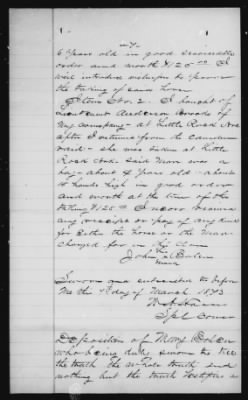 -7-
6 years old in good serviceable
order and worth $125.00 I
will introduce witnesses to prove
the taking of same horse
Item No. 2. I bought of
Lieutenant Anderson Brooks of
my company - at Little Rock Ark
after I returned from the
ward - she was taken at Little
Rock Ark. Said Mare was a
bay - about 4 years old - about
14 hands high in good order
and worth at the time of the
taking $125.00 I never received
any receipt or pay of any kind
for either the horse or the Mare
charged for in my claim
John Bolen
mark
Sworn and subscribed to before
me the day of March 1873
Spl Comr
Deposition of Mary Bolen
who being duly sworn to tell
the truth the whole truth and
nothing but the truth testifies as